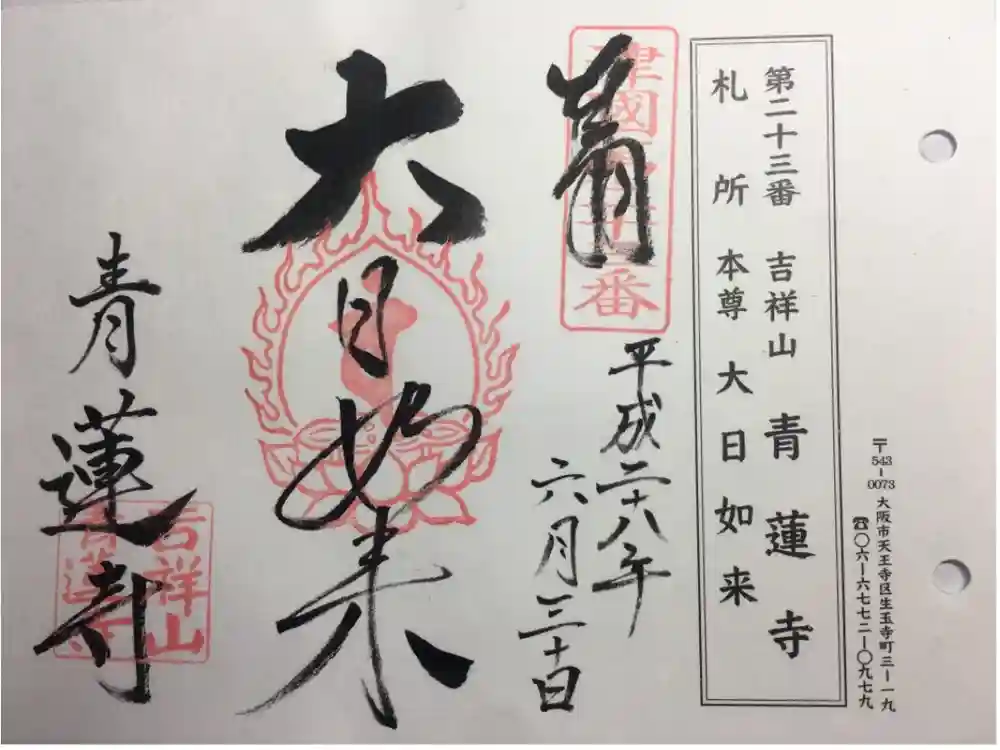 第二十三番 吉祥山 青蓮寺
札所本尊 大日如来
〒543-0073 大阪市天王寺区生玉寺町三-一九
☎〇六-六七七二-〇九七九
平成二十八年
六月三十日
大日如来
青蓮寺
吉祥山
青蓮寺